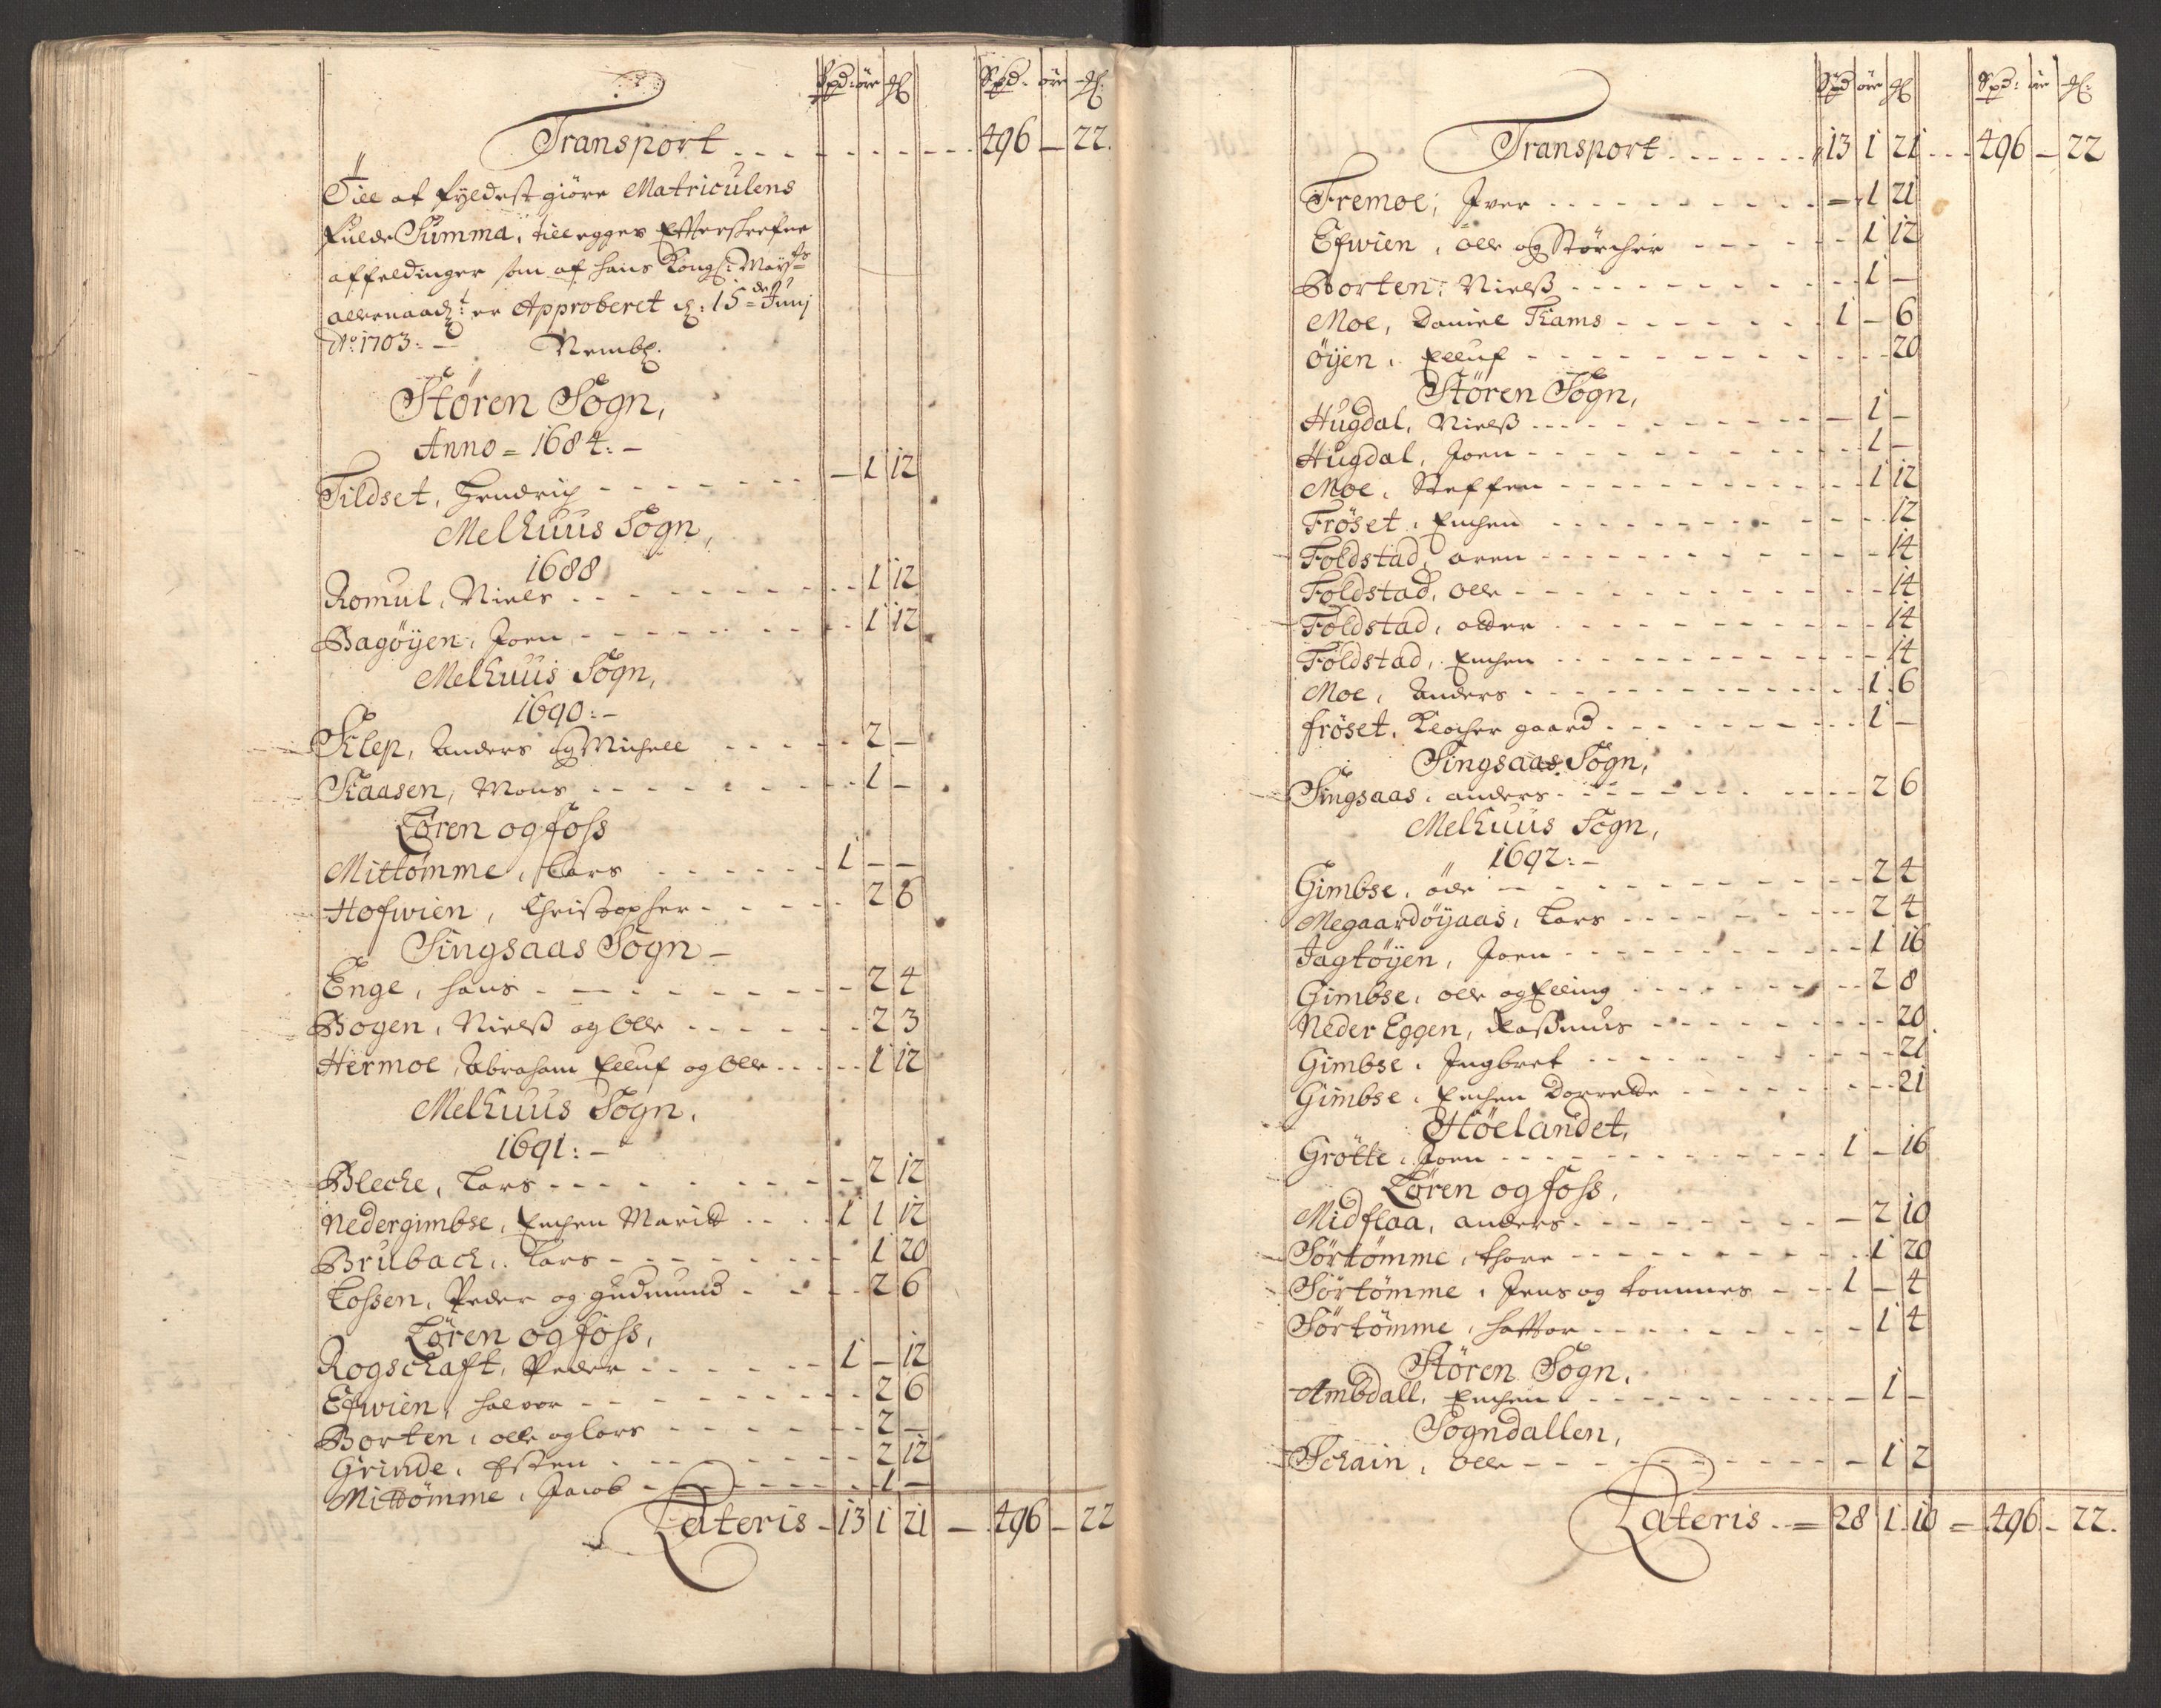 Spd: öre
Spd: öre
Transport - - - - - - - - - 496 – 22.
Till at fyldestgiöre Matriculens
fulde Summa, tillegges Efterskrefne
affeldinger som af hans Kongl: Mayts
allernaadt: er Approberet d: 15de Junj
Ao: 1703: –
Nembl.
Stören Sogn,
Anno = 1684: –
Tildset, Hendrich - - - - - - - – 1 12
Melhuus Sogn,
1688
Romul, Niels - - - - - - - - 1 12
Bagöyen, Joen - - - - - - - - 1 12
Melhuus Sogn,
1690: –
Klep, Anders og Michell - - - - - 2 –
Kaasen, Mons - - - - - - - - 1 –
Lören og foss
Mittömme, Lars - - - - - - 1 – –
Hofwien, Christopher - - - - - 2 8
Singsaas Sogn –
Enge, hans - - - - - - - - - 2 4
Bogen, Nielß og Olle - - - - - - 2 3
Hermoe, Abraham Elluf og Olle - - - - - 1 12
Melhuus Sogn,
1691: –
Bleche, Lars - - - - - - - - – 2 12
Nedergimbse, Enchen Maritt - - - - 1 1 12
Brubach, Lars - - - - - - - 1 20
Lossen, Peder og gudmund - - - - 2 6
Lören og foss,
Rogschaft, Peder - - - - - - 1 – 12
Efwien, halvor - - - - - - - - 2 6
Borten, olle og lars - - - - - - - 2 –
Grinde, Esten - - - - - - - - 2 12
Mittömme, Jacob - - - - - - - - 1 –
Lateris – 13 1 21 – 496 – 22
Spd öre
Spd: öre
Transport - - - - - - - 13 1 21 - - - 496 – 22
Fremoe, Iver - - - - - - - - - - – 1 21
Efwien, olle og Störcher - - - - - - 1 12
Borten, Nielß - - - - - - - - - - 1 –
Moe, Daniel Krams - - - - - - - 1 – 6
öyen, Elluf - - - - - - - - - - - - 20
Stören Sogn,
Hugdal, Nielß - - - - - - - - - - – 1 –
Hugdal, Joen - - - - - - - - - - - 1 –
Moe, Steffen - - - - - - - - - - - 1 12
Fröset, Enchen - - - - - - - - - - - 12
Foldstad, aren - - - - - - - - - - - 14
Foldstad, olle - - - - - - - - - - - - 14
Foldstad, adder - - - - - - - - - - - 14
Foldstad, Enchen - - - - - - - - - - - 14
Moe, Anders - - - - - - - - - - - 1 6
fröset, Klocher gaard - - - - - - - - - 1 –
Singsaas Sogn,
Singsaas, anders - - - - - - - - - - 2 6
Melhuus Sogn,
1692: –
Gimbse, öde - - - - - - - - - - - 2 4
Megaardöyaas, Lars - - - - - - - - 2 4
Jagtöyen, Joen - - - - - - - - - 1 16
Gimbse, olle og Elling - - - - - - - - 2 8
Neder Eggen, Rassmus - - - - - - - - - 20
Gimbse, Ingbret - - - - - - - - - - - 21
Gimbse, Enchen Dorrette - - - - - - - - 21
Höelandet,
Grötte, Joen - - - - - - - - - - - 1 – 16
Lören og foss,
Midflaa, anders - - - - - - - - – 2 10
Sörtömme, thore - - - - - - - - - - 1 20
Sörtömme, Jens og tommes - - - 1 – 4
Sörtömme, haftor - - - - - - - - - 1 4
Stören Sogn,
Ambdall, Enchen - - - - - - - - - – 1 –
Sogndallen,
Schain, olle - - - - - - - - - - – 1 2
Lateris - = 28 1 10 = 496 – 22.